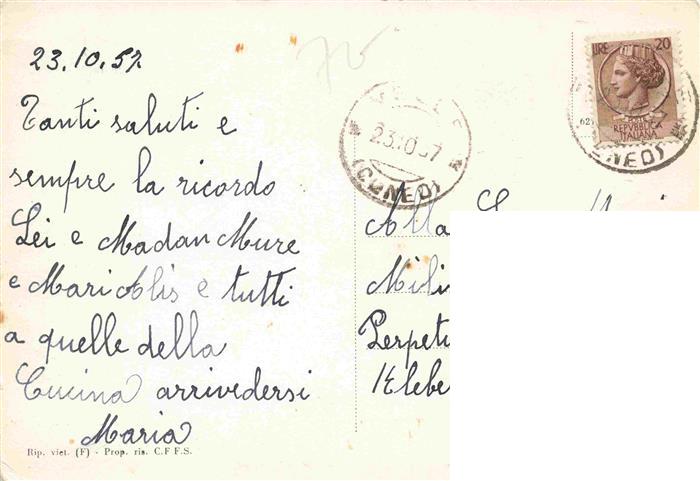 23.10.57
Tanti saluti e
sempre la ricordo
Lei e Madan Mure
e Mari Alis e tutti
a quelle della
Cucina arrivedersi
Maria
Rip. viet. (F) - Prop. ris. C.F F.S.
75
23.10.57
(CUNEO)
LIRE 20
REPVBBLICA
ITALIANA
Alla